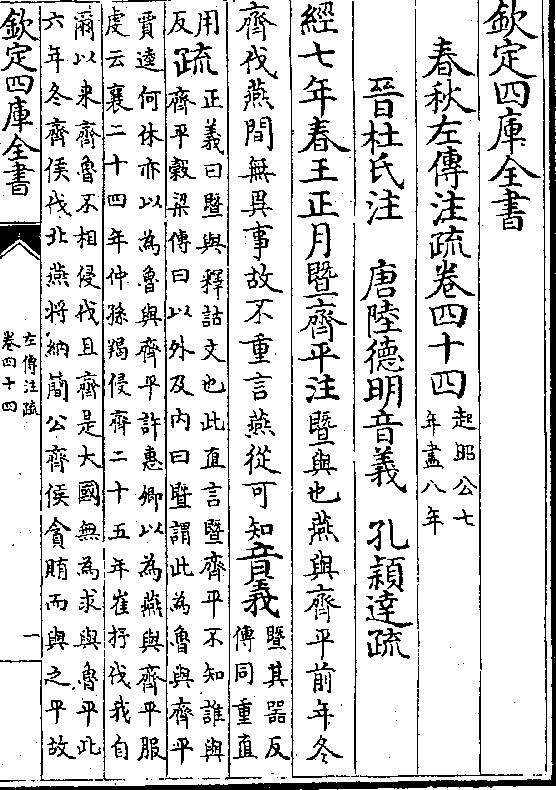 欽定四庫全書
春秋左傳注疏卷四十四
起昭公七
年盡八年
晉杜氏注　唐陸德明音義　孔穎達疏
經七年春王正月暨齊平注暨與也燕與齊平前年冬
齊伐燕間無異事故不重言燕從可知音義
暨其器反
傳同重直
用
反
疏
正義曰暨與釋詁文也此直言暨齊平不知誰與
齊平穀梁傳曰以外及內曰暨謂此為魯與齊平
賈逵何休亦以為魯與齊平許惠卿以為燕與齊平服
虔云襄二十四年仲孫羯侵齊二十五年崔杼伐我自
爾以來齊魯不相侵伐且齊是大國無為求與魯平此
六年冬齊侯伐北燕將納簡公齊侯貪賄而與之平故
欽定四庫全書
左傳注疏
卷四十四
一